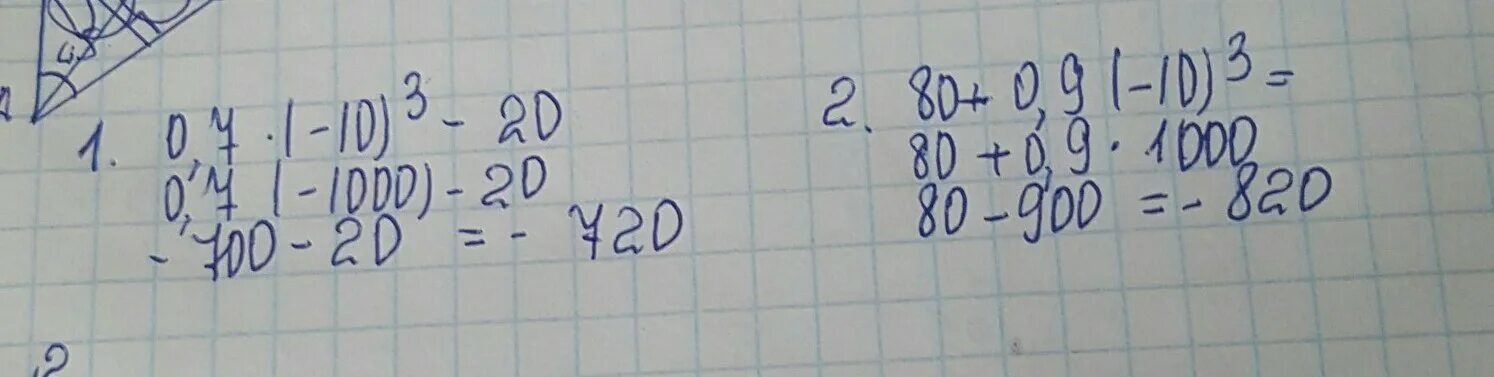 1. 0,7 · (-10)³ - 20
0,7 (-1000) - 20
- 700 - 20 = - 720
2. 80 + 0,9 (-10)³ =
80 + 0,9 · 1000
80 - 900 = - 820
2